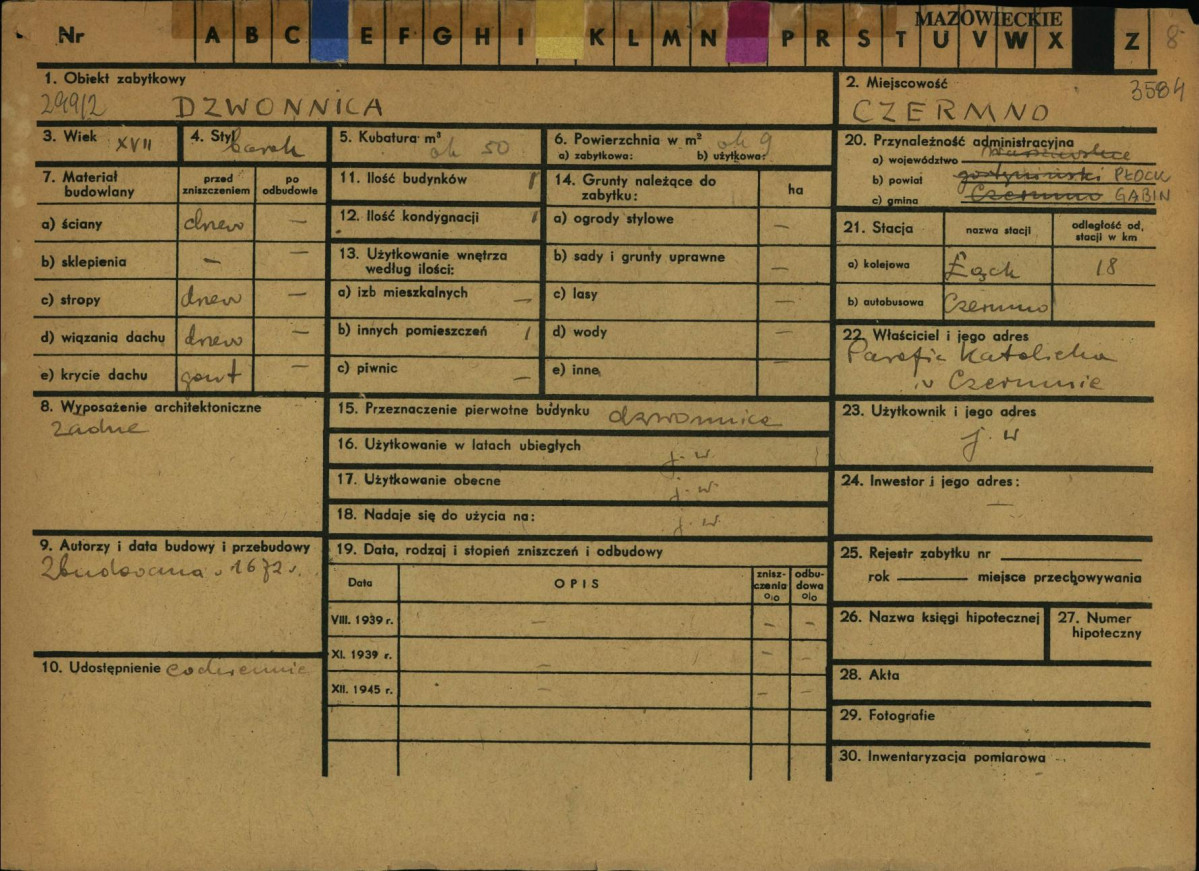 MAZOWIECKIE
Nr A B C E F G H I K L M N P R S T U V W X Z 8
1. Obiekt zabytkowy
299/2 DZWONNICA
2. Miejscowość 3584
CZERMNO
3. Wiek XVII
4. Styl barok
5. Kubatura m³ ok 50
6. Powierzchnia w m² ok 9
a) zabytkowa: b) użytkowa:
7. Materiał budowlany
przed zniszczeniem
po odbudowie
a) ściany drzew —
b) sklepienia — —
c) stropy drzew —
d) wiązania dachu drzew —
e) krycie dachu gont —
8. Wyposażenie architektoniczne
żadne
9. Autorzy i data budowy i przebudowy
Zbudowana w 1672 r.
10. Udostępnienie codziennie
11. Ilość budynków 1
12. Ilość kondygnacji 1
13. Użytkowanie wnętrza
według ilości:
a) izb mieszkalnych —
b) innych pomieszczeń 1
c) piwnic —
14. Grunty należące do
zabytku: ha
a) ogrody stylowe —
b) sady i grunty uprawne —
c) lasy —
d) wody —
e) inne
15. Przeznaczenie pierwotne budynku dzwonnica
16. Użytkowanie w latach ubiegłych j. w
17. Użytkowanie obecne j. w
18. Nadaje się do użycia na: j. w
19. Data, rodzaj i stopień zniszczeń i odbudowy
Data OPIS znisz-czenia o/o odbu-dowa o/o
VIII. 1939 r. — — —
XI. 1939 r. — — —
XII. 1945 r. — — —
20. Przynależność administracyjna
a) województwo warszawskie
b) powiat gostyniński PŁOCK
c) gmina Czermno GĄBIN
21. Stacja nazwa stacji odległość od, stacji w km
a) kolejowa Łąck 18
b) autobusowa Czermno
22. Właściciel i jego adres
Parafia Katolicka
w Czermnie
23. Użytkownik i jego adres
j. w
24. Inwestor i jego adres:
—
25. Rejestr zabytku nr
rok miejsce przechowywania
26. Nazwa księgi hipotecznej
27. Numer
hipoteczny
28. Akta
29. Fotografie
30. Inwentaryzacja pomiarowa